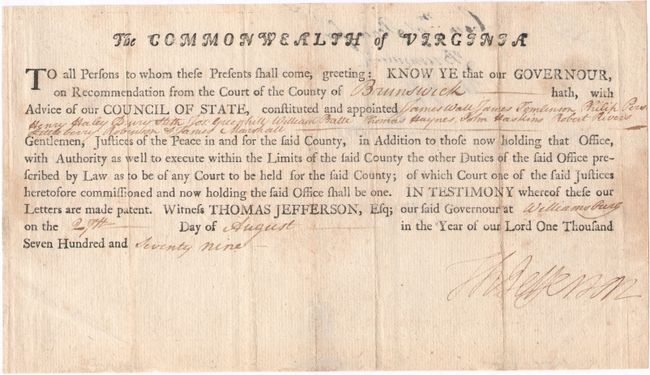 The COMMONWEALTH of VIRGINIA
TO all Persons to whom these Presents shall come, greeting: KNOW YE that our GOVERNOUR,
on Recommendation from the Court of the County of Brunswick hath, with
Advice of our COUNCIL OF STATE, constituted and appointed James Wall James Tomlinson Philip
Henry William Thomas Haynes, John Haskins Robert Rivers
Robinson & James Marshall
Gentlemen, Justices of the Peace in and for the said County, in Addition to those now holding that Office,
with Authority as well to execute within the Limits of the said County the other Duties of the said Office pre-
scribed by Law as to be of any Court to be held for the said County; of which Court one of the said Justices
heretofore commissioned and now holding the said Office shall be one. IN TESTIMONY whereof these our
Letters are made patent. Witness THOMAS JEFFERSON, Esq; our said Governour at Williamsburg
on the Day of August in the Year of our Lord One Thousand
Seven Hundred and Seventy nine
Th Jefferson